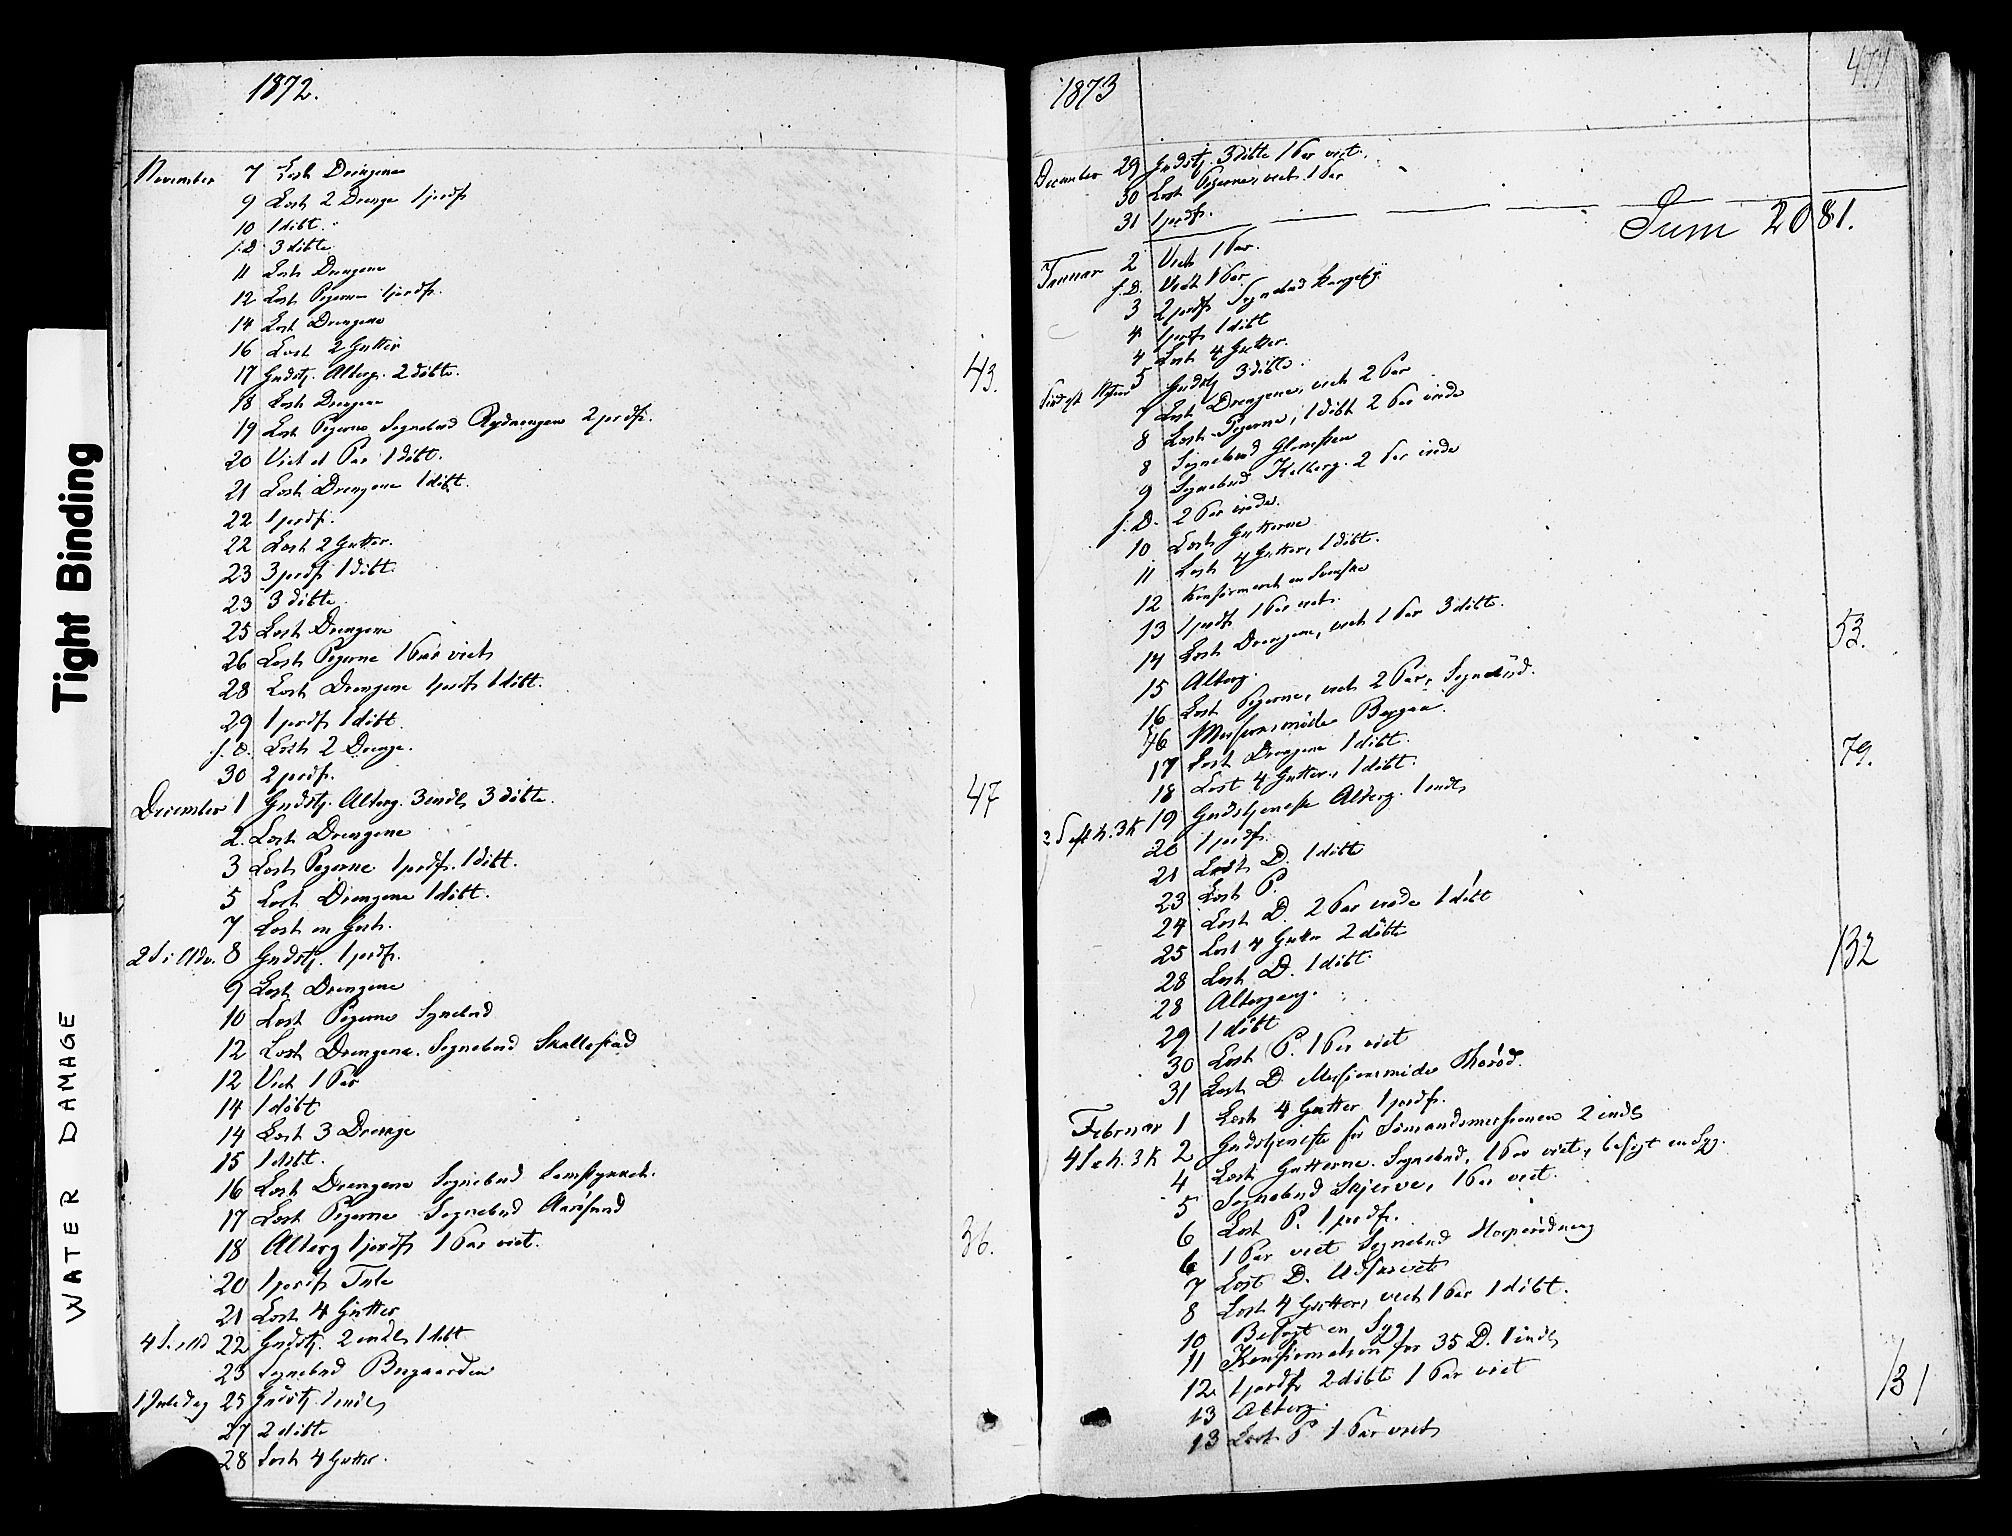 Tight Binding
WATER DAMAGE
1872.
November 7 Læst Drengene
9 Læst 2 Drenge 1 jordf
10 1 døbt.
s.D. 3 døbte
11 Læst Drengene
12 Læst Pigerne 1 jordf.
14 Læst Drengene
16 Læst 2 Gutter
17 Gudstj. Alterg. 2 døbte. 43.
18 Læst Drengene
19 Læst Pigerne Sognebud 2 jordf.
20 Viet et Par 1 døbt.
21 Læst Drengene 1 døbt.
22 1 jordf.
22 Læst 2 Gutter.
23 3 jordf. 1 døbt.
23 3 døbte
25 Læst Drengene
26 Læst Pigerne 1 Par viet
28 Læst Drengene 1 jordf. 1 døbt.
29 1 jordf. 1 døbt.
s.D. Læst 2 Drenge.
30 2 jordf.
December 1 Gudstj. Alterg. 3 indl. 3 døbte. 47
2. Læst Drengene
3 Læst Pigerne 1 jordf. 1 døbt.
5 Læst Drengene 1 døbt.
7 Læst en Gut.
2 S i Adv. 8 Gudstj. 1 jordf.
9 Læst Drengene
10 Læst Pigerne Sognebud
12 Læst Drengene. Sognebud Skallestad
12 Viet 1 Par
14 1 døbt
14 Læst 3 Drenge
15 1 døbt.
16 Læst Drengene Sognebud
17 Læst Pigerne Sognebud Aarøsund
18 Alterg 1 jordf. 1 Par viet. 36.
20 1 jordf
21 Læst 4 Gutter
4 S. i Ad 22 Gudstj. 2 indl. 1 døbt
23 Sognebud Bergaarden
1 Juledag 25 Gudstj. 1 indl.
27 2 døbte
28 Læst 4 Gutter.
1873 477
December 29 Gudstj. 3 døbte 1 Par viet.
30 Læst Pigerne, viet 1 Par
31 1 jordf.
Sum 2081.
Januar 2 Viet 1 Par.
s.D. Viet 1 Par.
3 2 jordf Sognebud
4 1 jordf 1 døbt
4 Læst 4 Gutter.
5 Gudstj 3 døbte.
7 Læst Drengene, viet 2 Par
8 Læst Pigerne, 1 døbt 2 Par viede
8 Sognebud
9 Sognebud 2 Par viede
s.D. 2 Par viede.
10 Læst Gutterne
11 Læst 4 Gutter, 1 døbt.
12 Konfirmeret en Svenske
13 1 jordf 1 Par viet.
14 Læst Drengene, viet 1 Par 3 døbte. 53.
15 Alterg.
16 Læst Pigerne, viet 2 Par, Sognebud.
16 Missionsmøde
17 Læst Drengene 1 døbt.
18 Læst 4 Gutter, 1 døbt. 79.
2 S eft h. 3 K 19 Gudstjeneste Alterg. 1 indl.
20 1 jordf.
21 Læst D. 1 døbt
23 Læst P.
24 Læst D. 2 Par viede 1 døbt
25 Læst 4 Gutter 2 døbte 132
28 Læst D. 1 døbt.
28 Altergang.
29 1 døbt
30 Læst P. 1 Par viet
31 Læst D. Missionsmøde Thorød.
Februar 1 Læst 4 Gutter 1 jordf.
4 S e h. 3 K 2 Gudstjeneste for Sømandsmissionen 2 indl.
4 Læst Gutterne. Sognebud, 1 Par viet, besøgt en Syg.
5 Sognebud Skjerve, 1 Par viet.
6 Læst P. 1 jordf.
6 1 Par viet Sognebud
7 Læst D.
8 Læst 4 Gutter, viet 1 Par 1 døbt.
10 Besøgt en Syg.
11 Konfirmation for 35 D. 1 indl. 131
12 1 jordf. 2 døbte 1 Par viet
13 Alterg.
13 Læst P 1 Par viet